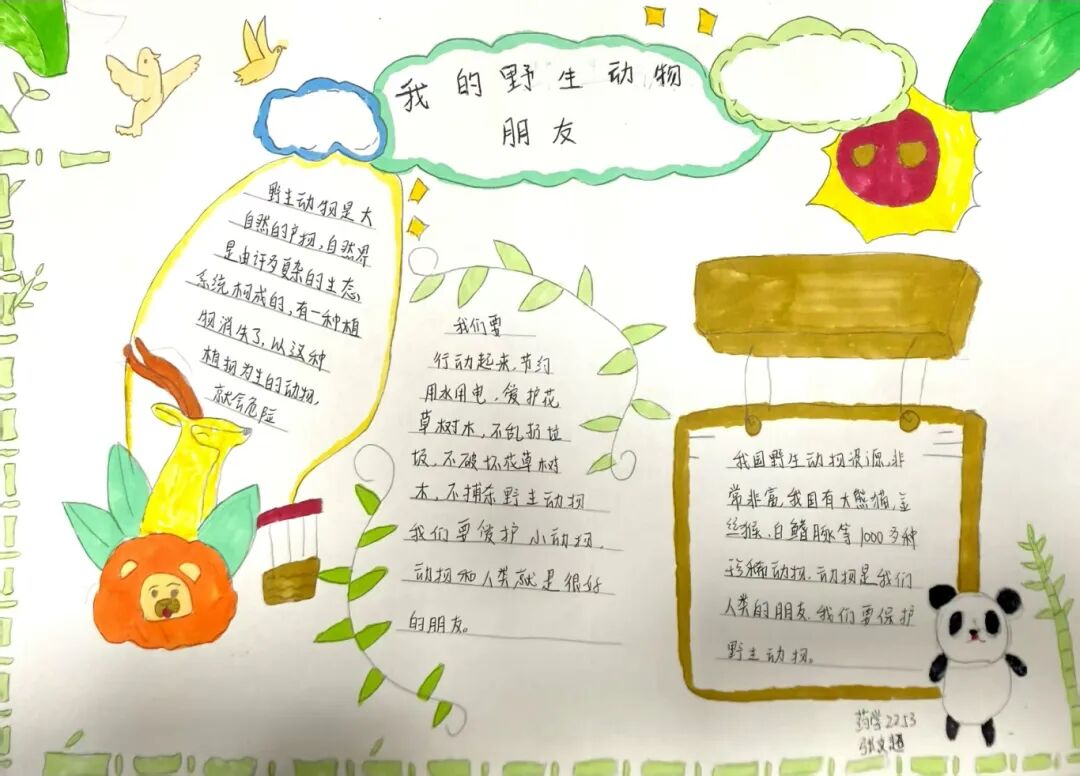 我的野生动物
朋友
野生动物是大
自然的产物,自然界
是由许多复杂的生态
系统构成的,有一种植
物消失了,以这种
植物为生的动物,
就会危险
我们要
行动起来,节约
用水用电,爱护花
草树木,不乱扔垃
圾,不破坏花草树
木,不捕杀野生动物
我们要爱护小动物,
动物和人类就是很好
的朋友。
我国野生动物资源,非
常非富,我国有大熊猫,金
丝猴,白鳍豚等1000多种
珍稀动物,动物是我们
人类的朋友,我们要保护
野生动物。
药学2253
张文